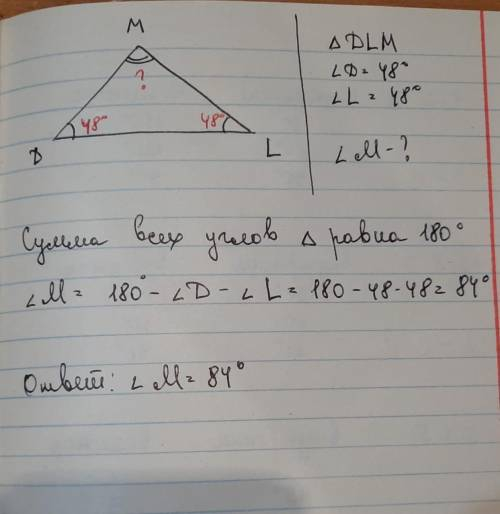 M
?
48°
48°
D
L
Δ DLM
∠D = 48°
∠L = 48°
∠M - ?
Сумма всех углов Δ равна 180°
∠M = 180° - ∠D - ∠L = 180 - 48 - 48 = 84°
Ответ: ∠M = 84°